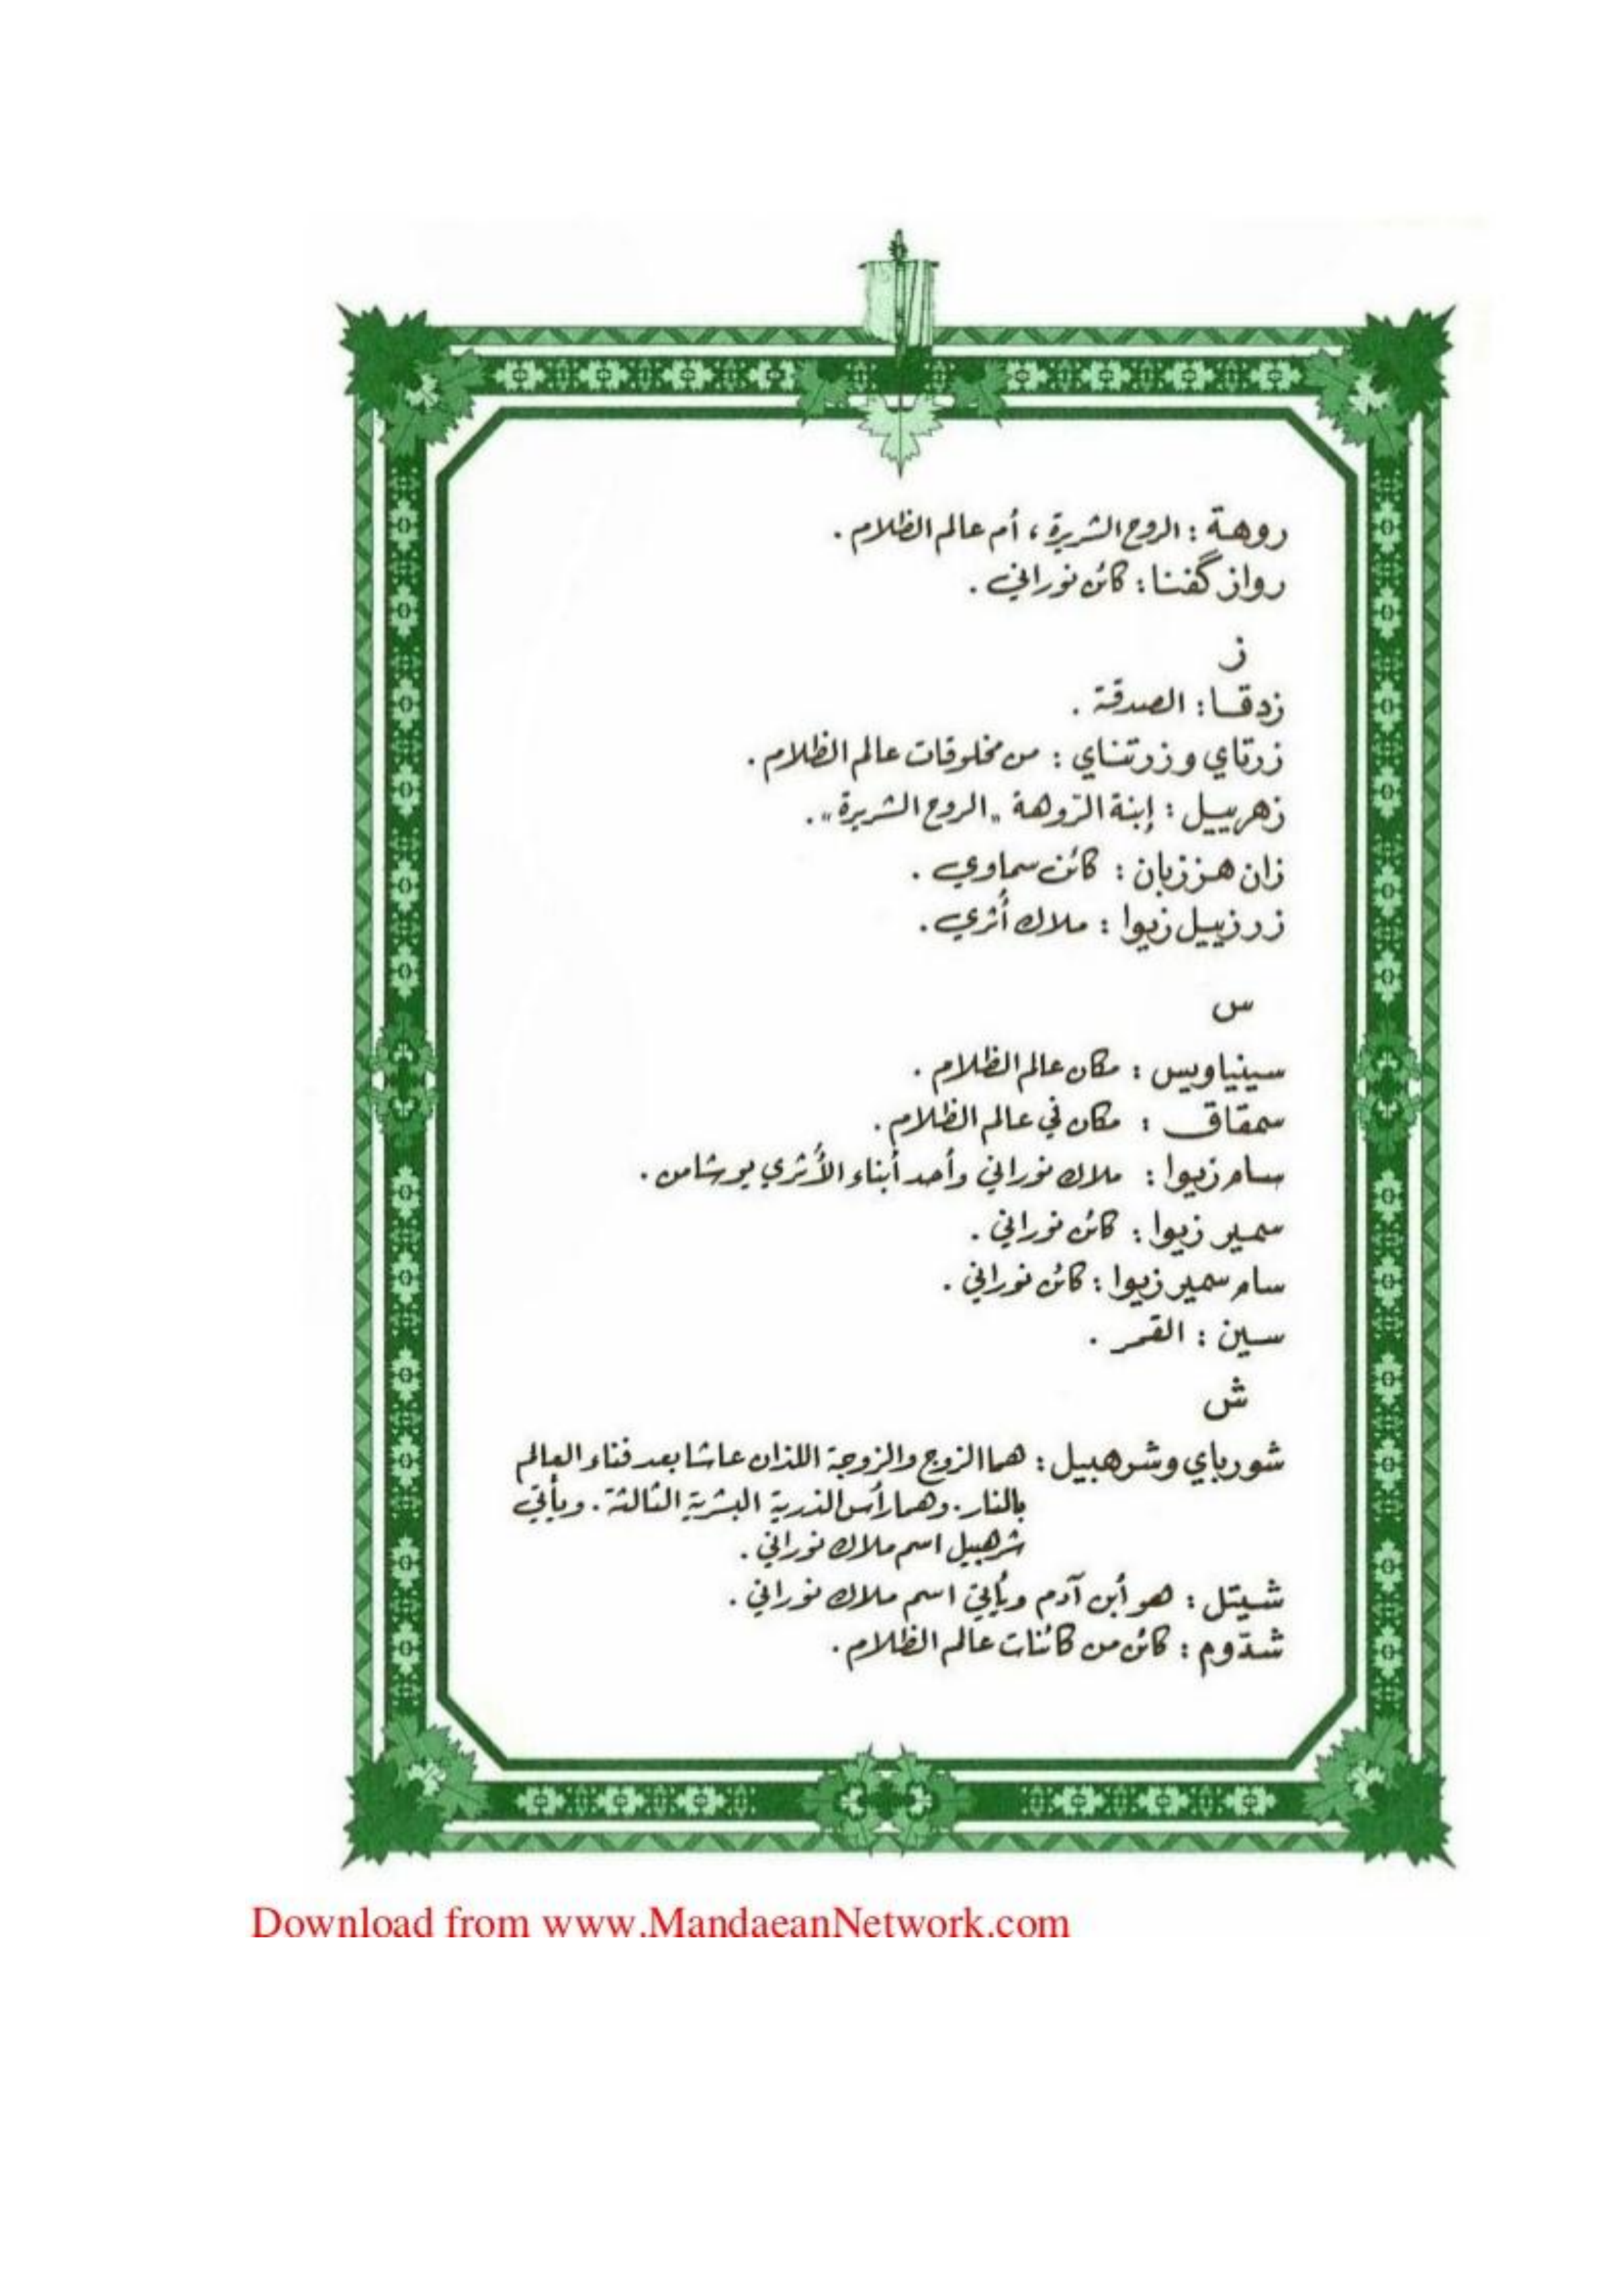 روهة : الروح الشريرة ، أم عالم الظلام .
رواز گفنا : كائن نوراني .
ز
زدقا : الصدقة .
زرتاي وزرتناي : من مخلوقات عالم الظلام .
زهرييل : إبنة الرّوهة "الروح الشريرة" .
زان هززبان : كائن سماوي .
زرزييل زيوا : ملاك أُثري .
س
سينياويس : مكان عالم الظلام .
سمقاق : مكان في عالم الظلام .
سام زيوا : ملاك نوراني وأحد أبناء الأُثري يوشامن .
سمير زيوا : كائن نوراني .
سام سمير زيوا : كائن نوراني .
سين : القمر .
ش
شورباي وشرهبيل : هما الزوج والزوجة اللذان عاشا بعد فناء العالم
بالنار . وهما رأس الذرية البشرية الثالثة . ويأتي
شرهبيل اسم ملاك نوراني .
شيتل : هو أبن آدم ويأتي اسم ملاك نوراني .
شدّوم : كائن من كائنات عالم الظلام .
Download from www.MandaeanNetwork.com